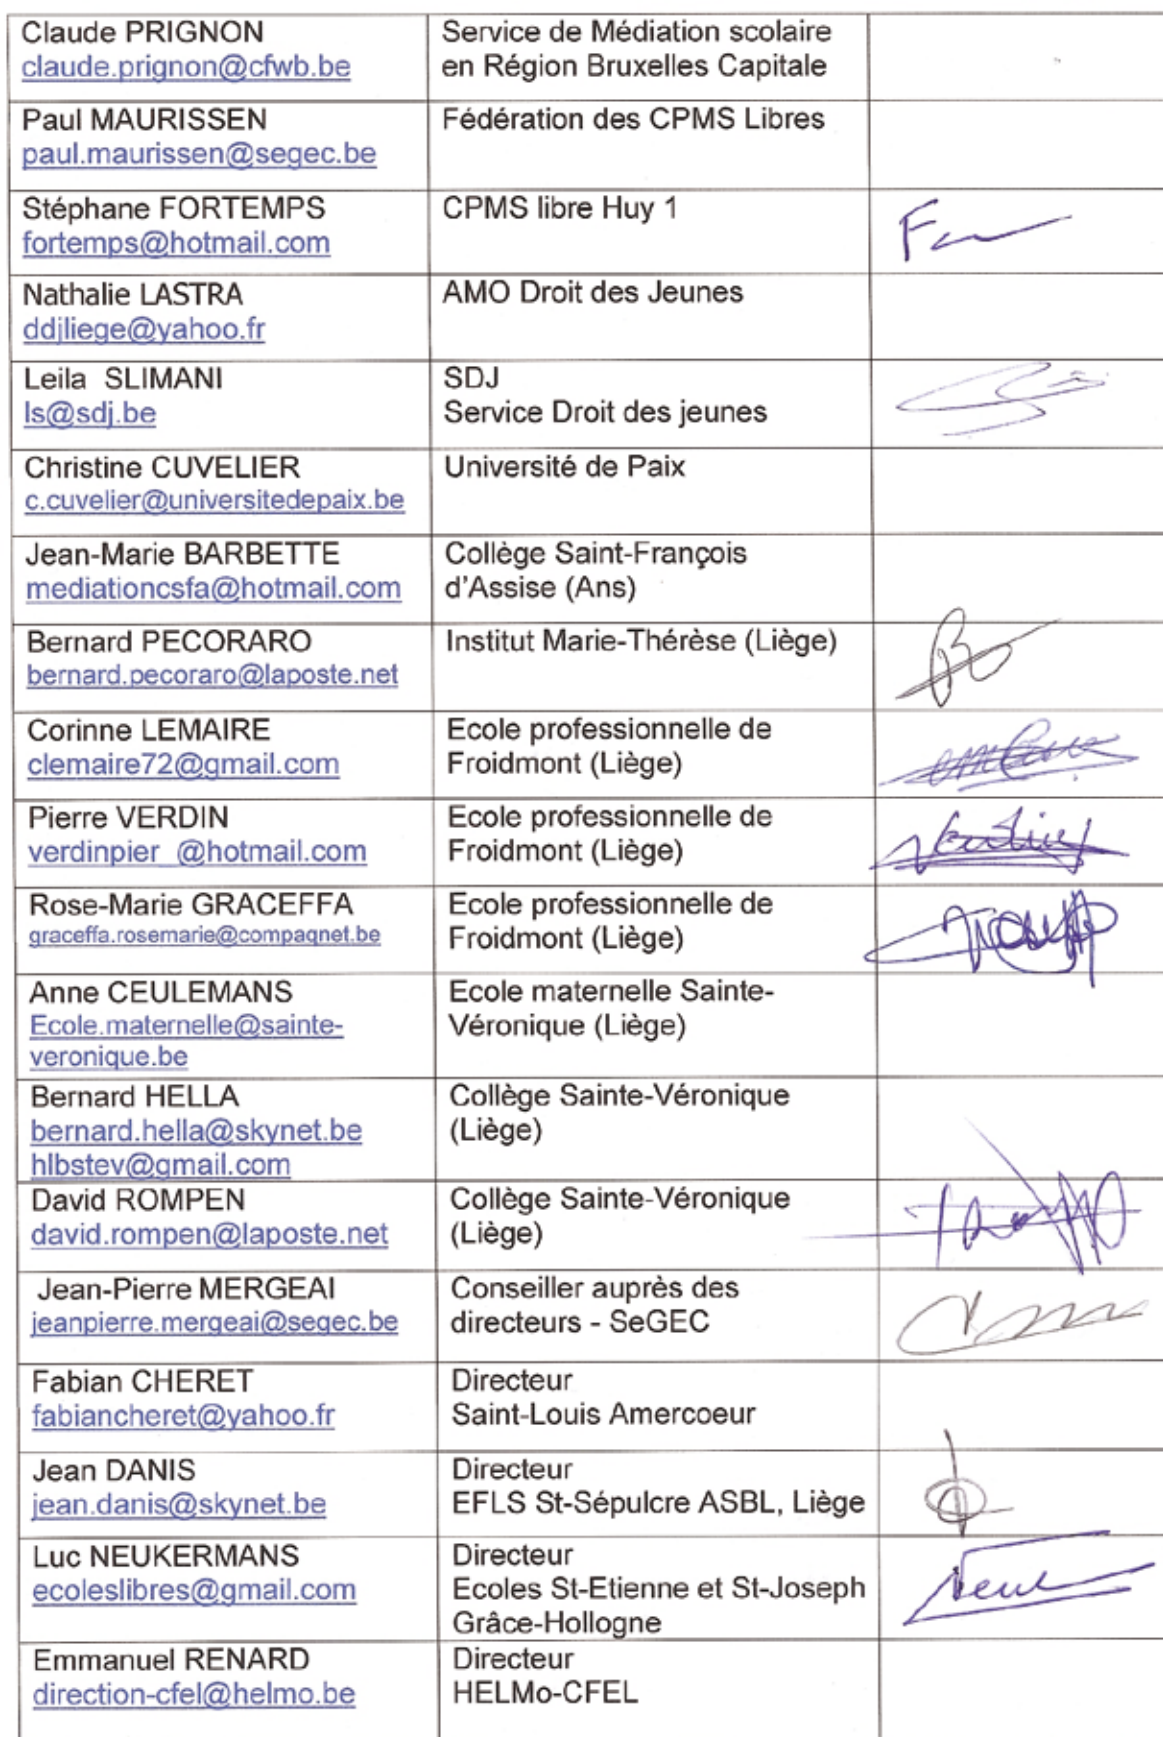 Claude PRIGNON
claude.prignon@cfwb.be
Service de Médiation scolaire
en Région Bruxelles Capitale
Paul MAURISSEN
paul.maurissen@segec.be
Fédération des CPMS Libres
Stéphane FORTEMPS
fortemps@hotmail.com
CPMS libre Huy 1
Nathalie LASTRA
ddjliege@yahoo.fr
AMO Droit des Jeunes
Leila SLIMANI
ls@sdj.be
SDJ
Service Droit des jeunes
Christine CUVELIER
c.cuvelier@universitedepaix.be
Université de Paix
Jean-Marie BARBETTE
mediationcsfa@hotmail.com
Collège Saint-François
d'Assise (Ans)
Bernard PECORARO
bernard.pecoraro@laposte.net
Institut Marie-Thérèse (Liège)
Corinne LEMAIRE
clemaire72@gmail.com
Ecole professionnelle de
Froidmont (Liège)
Pierre VERDIN
verdinpier_@hotmail.com
Ecole professionnelle de
Froidmont (Liège)
Rose-Marie GRACEFFA
graceffa.rosemarie@compaqnet.be
Ecole professionnelle de
Froidmont (Liège)
Anne CEULEMANS
Ecole.maternelle@sainte-
veronique.be
Ecole maternelle Sainte-
Véronique (Liège)
Bernard HELLA
bernard.hella@skynet.be
hlbstev@gmail.com
Collège Sainte-Véronique
(Liège)
David ROMPEN
david.rompen@laposte.net
Collège Sainte-Véronique
(Liège)
Jean-Pierre MERGEAI
jeanpierre.mergeai@segec.be
Conseiller auprès des
directeurs - SeGEC
Fabian CHERET
fabiancheret@yahoo.fr
Directeur
Saint-Louis Amercoeur
Jean DANIS
jean.danis@skynet.be
Directeur
EFLS St-Sépulcre ASBL, Liège
Luc NEUKERMANS
ecoleslibres@gmail.com
Directeur
Ecoles St-Etienne et St-Joseph
Grâce-Hollogne
Emmanuel RENARD
direction-cfel@helmo.be
Directeur
HELMo-CFEL